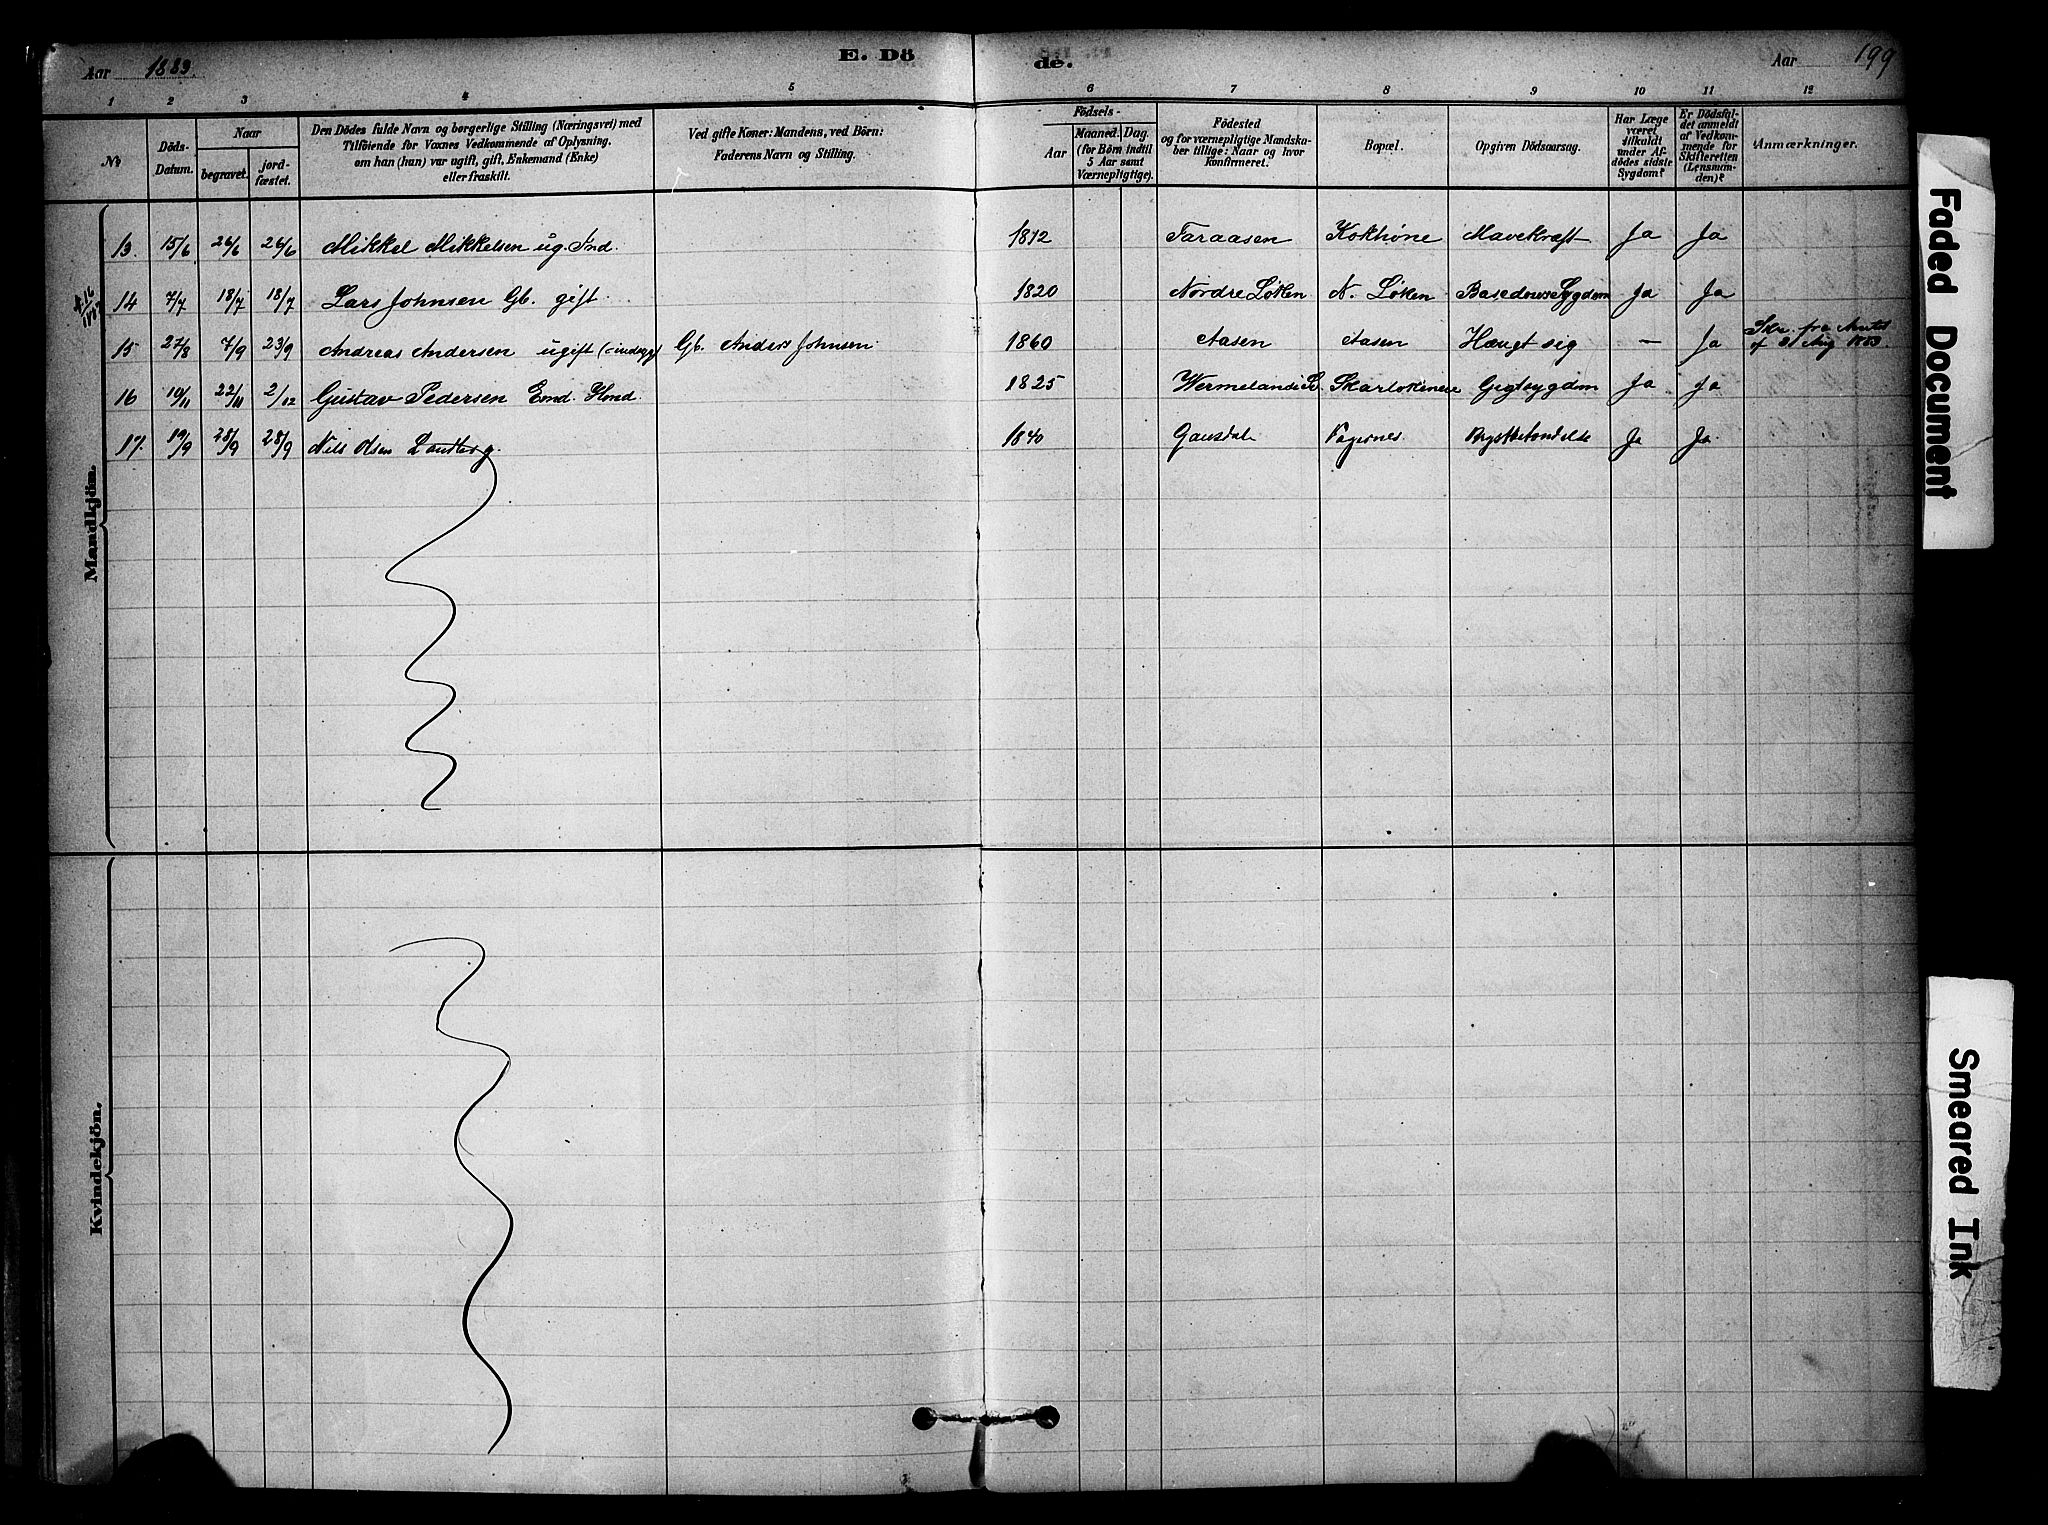 Aar 1883.
E. Dö de.
Aar
199
1 2 3 4 5 6 7 8 9 10 11 12
No
Döds-Datum.
Naar
begravet.
jord-fæstet.
Den Dödes fulde Navn og borgerlige Stilling (Næringsvei) med
Tilföiende for Voxnes Vedkommende af Oplysning,
om han (hun) var ugift, gift, Enkemand (Enke)
eller fraskilt.
Ved gifte Koner: Mandens, ved Börn:
Faderens Navn og Stilling.
Födsels-
Aar
Maaned. Dag.
(for Börn indtil
5 Aar samt
Værnepligtige).
Födested
og for værnepligtige Mandska-
ber tillige: Naar og hvor
konfirmeret.
Bopæl.
Opgiven Dödsaarsag.
Har Læge
været
tilkaldt
under Af-
dödes sidste
Sygdom?
Er Dödsfal-
det anmeldt
af Vedkom-
mende for
Skifteretten
(Lensman-
den)?
Anmærkninger.
Mandkjön.
13. 15/6 26/6 26/6 Mikkel Mikkelsen ug. Ind. 1812 Taraasen Mavekræft Ja Ja
14 7/7 18/7 18/7 Lars Johnsen Gb. gift. 1820 Nordre Löken N. Löken Basedows Sygdom Ja Ja
15 27/8 7/9 23/9 Andreas Andersen ugift Gb. Anders Johnsen. 1860 Aasen Aasen Hængt sig — Ja Skr. fra Amtet af 31 Aug 1883.
16 10/11 22/11 2/12 Gustav Pedersen Emd. 1825 Wermeland Gigtsygdom Ja Ja
17. 19/9 28/9 28/9 Nils Olsen 1840 Gausdal Fagernes Brystbetændelse Ja Ja.
Kvindekjön.
Faded Document
Smeared Ink